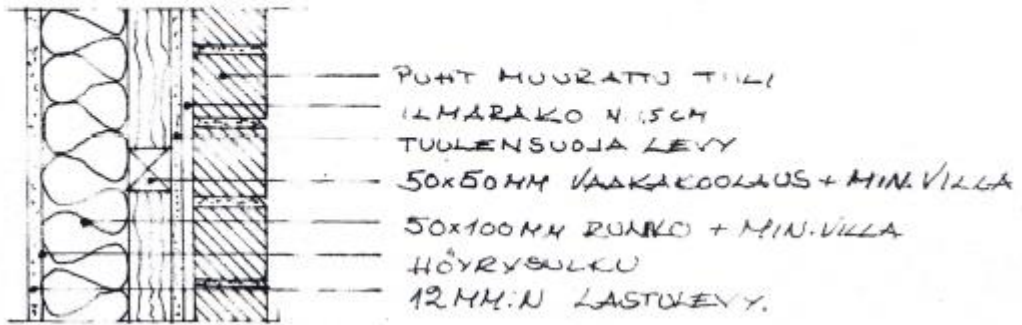 PUHT MUURATTU TIILI
ILMARAKO N. 1.5 CM
TUULENSUOJA LEVY
50x50 MM VAAKAKOOLAUS + MIN.VILLA
50x100 MM RUNKO + MIN.VILLA
HÖYRYSULKU
12 MM:N LASTULEVY.